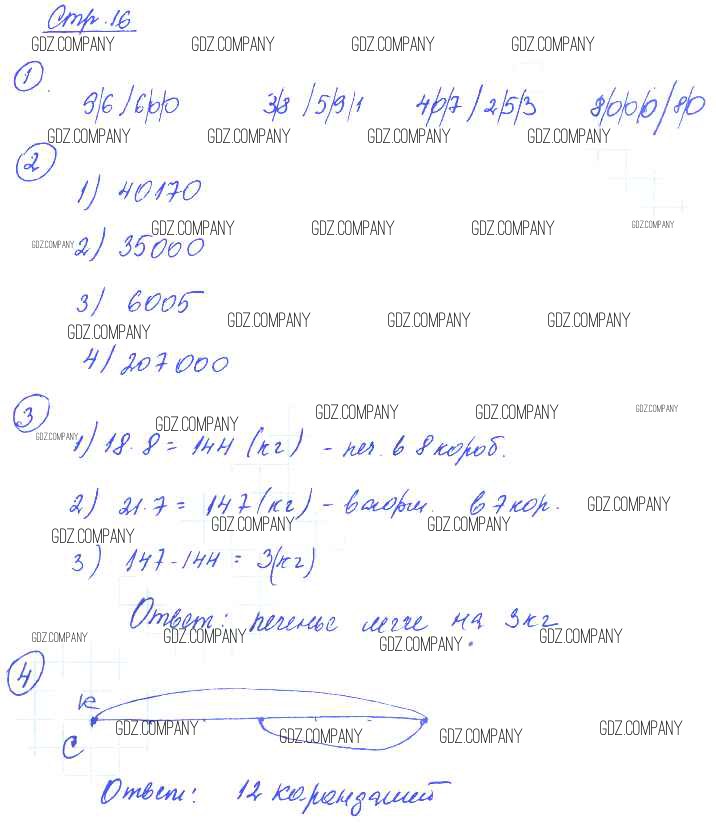 Стр. 16
GDZ.COMPANY GDZ.COMPANY GDZ.COMPANY GDZ.COMPANY
1.
9/6/6/0/0 3/8/5/9/1 4/0/7/2/5/3 8/0/0/0/8/0
GDZ.COMPANY GDZ.COMPANY GDZ.COMPANY GDZ.COMPANY
2
1) 40170
GDZ.COMPANY GDZ.COMPANY GDZ.COMPANY GDZ.COMPANY
GDZ.COMPANY 2) 35000
3) 6005
GDZ.COMPANY GDZ.COMPANY GDZ.COMPANY GDZ.COMPANY
4) 207000
3
GDZ.COMPANY GDZ.COMPANY GDZ.COMPANY GDZ.COMPANY
GDZ.COMPANY 1) 18·8 = 144 (кг) - печ. в 8 короб.
2) 21·7 = 147 (кг) - вафли. в 7 кор. GDZ.COMPANY
GDZ.COMPANY GDZ.COMPANY GDZ.COMPANY
3) 147-144 = 3(кг)
Ответ: печенье легче на 3 кг.
GDZ.COMPANY GDZ.COMPANY GDZ.COMPANY GDZ.COMPANY
4
К
GDZ.COMPANY GDZ.COMPANY GDZ.COMPANY GDZ.COMPANY
С
Ответ: 12 карандашей